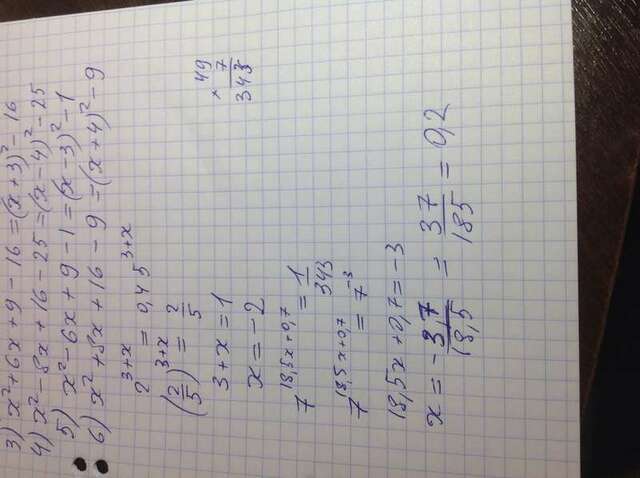 3) x²+6x+9-16=(x+3)²-16
4) x²-8x+16-25=(x-4)²-25
5) x²-6x+9-1=(x-3)²-1
6) x²+8x+16-9=(x+4)²-9
2^{3+x} = 0,4 5^{3+x}
(2/5)^{3+x} = 2/5
3+x=1
x=-2
49
× 7
343
7^{18,5x+0,7} = 1/343
7^{18,5x+0,7} = 7^{-3}
18,5x+0,7=-3
x = -3,7/18,5 = 37/185 = 0,2